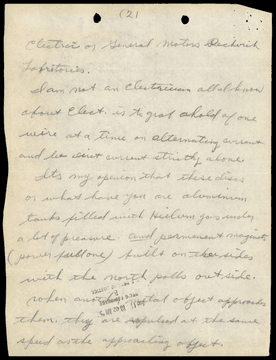 (2)
Electric or General Motors
I am not an Electrician all I know
about Elect. is to grab ahold of one
wire at a time on alternating current
and let direct current strictly alone
It's my opinion that these discs
or what have you are aluminum
tanks filled with Helium gas under
a lot of pressure and permanent magnets
(power full one) built on their sides
with the north polls out side.
when another object approaches
them. they are repulsed at the same
speed as the approaching object.